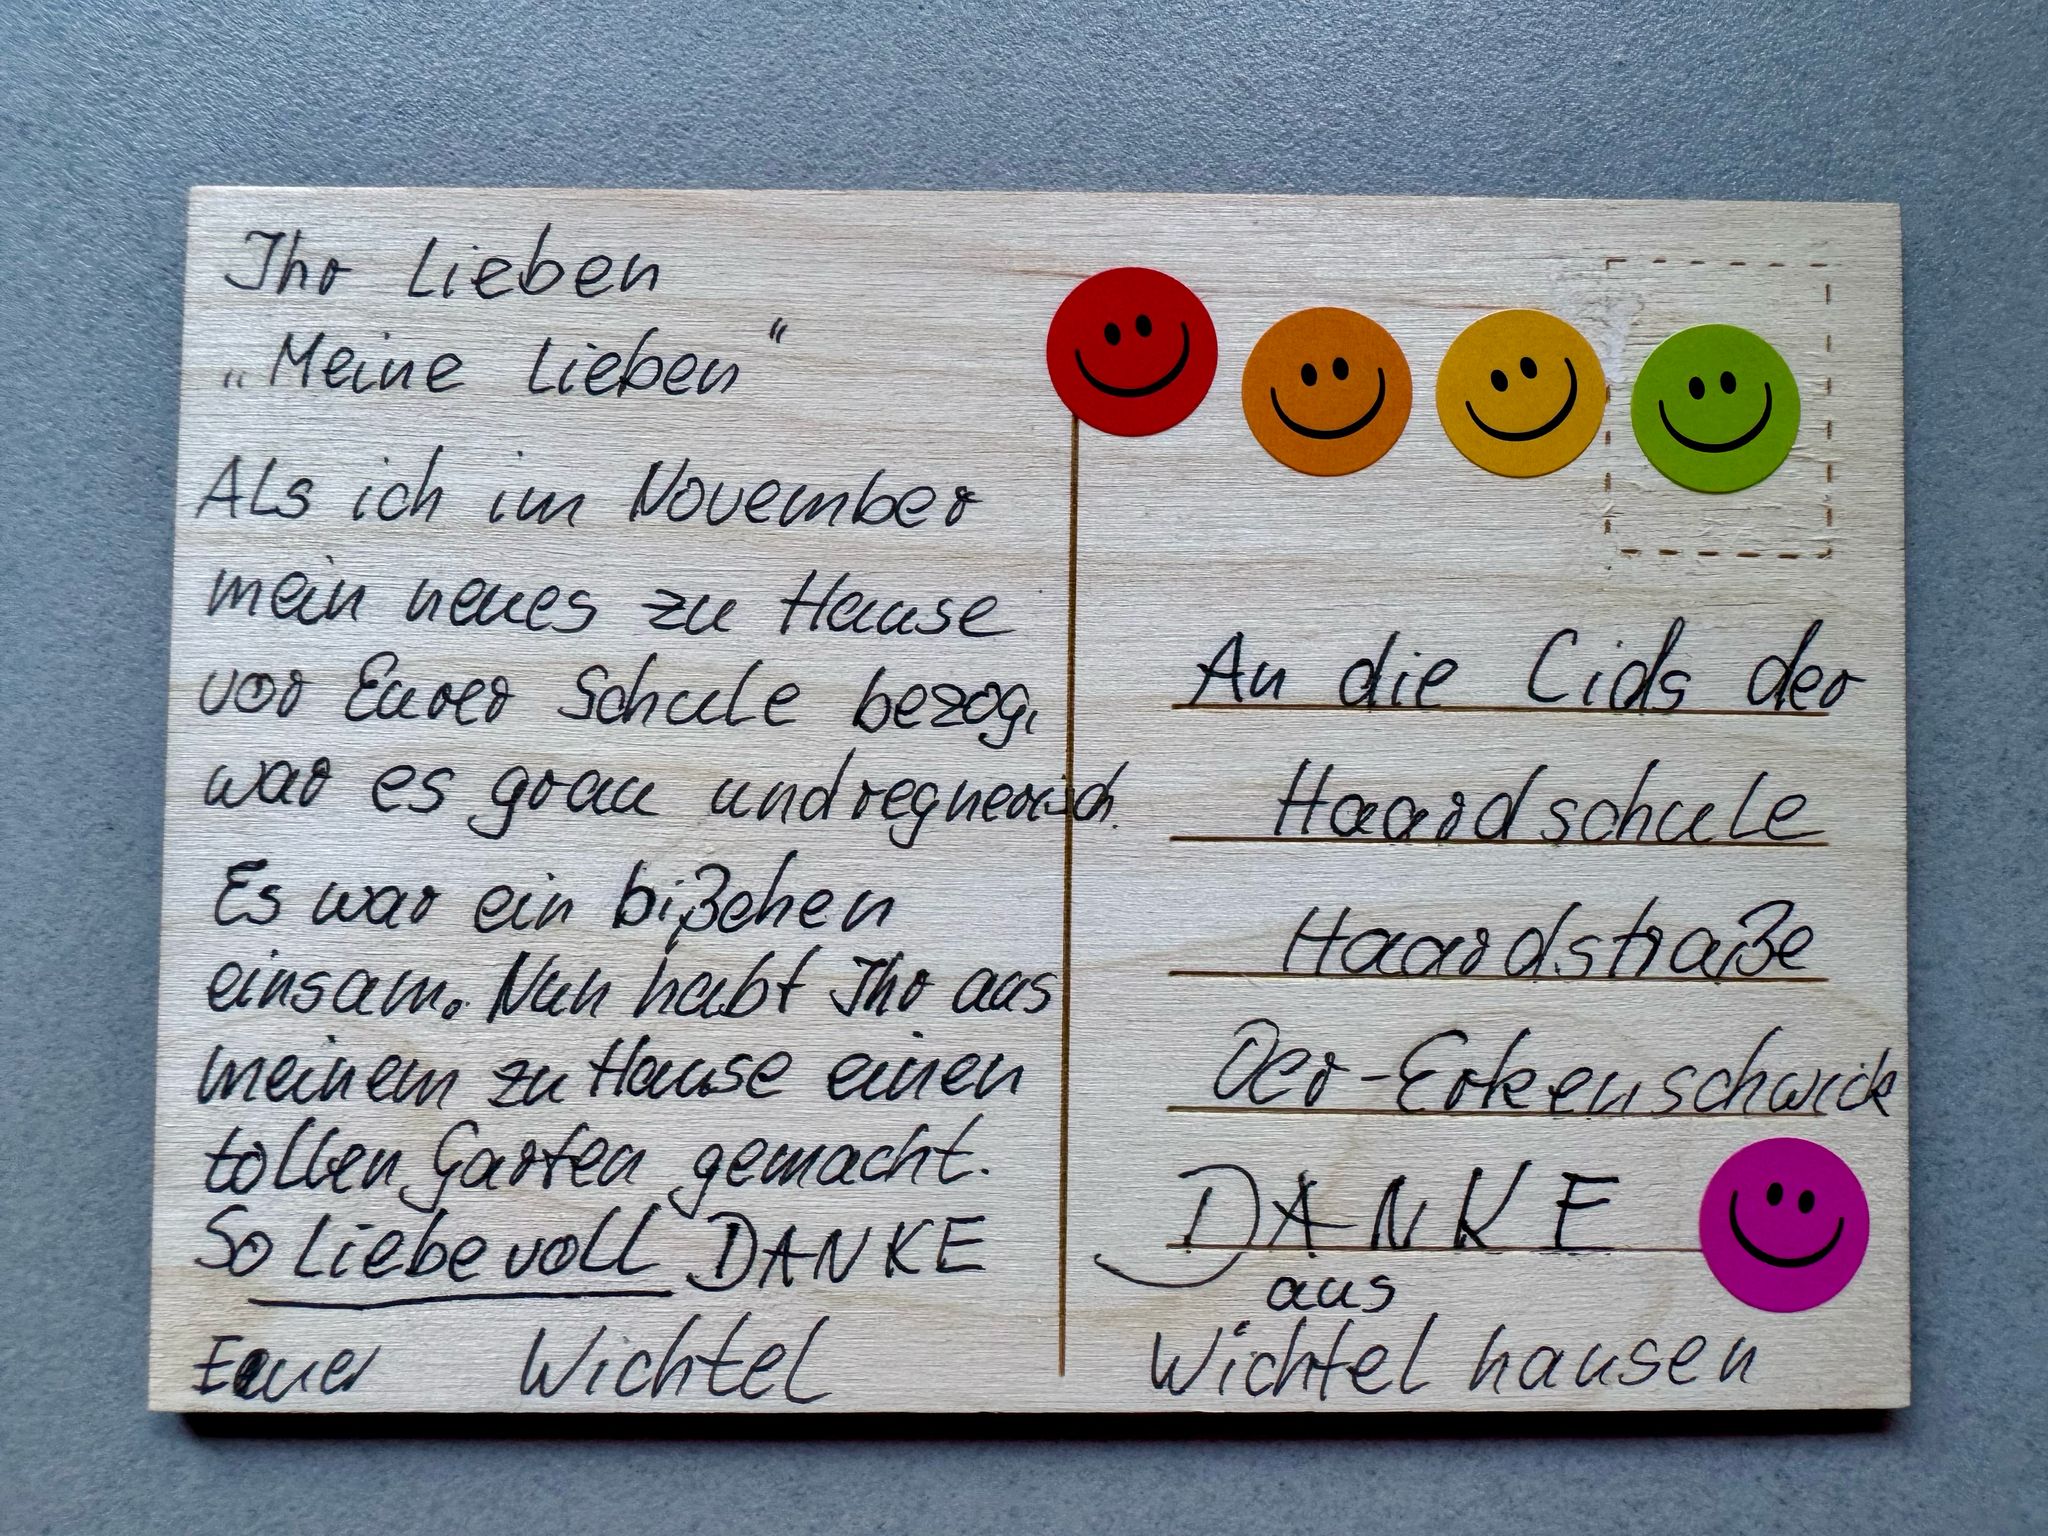 Ihr Lieben
„Meine Lieben“
Als ich im November
mein neues zu Hause
vor Eurer Schule bezog,
war es grau und regnerisch.
Es war ein bißchen
einsam. Nun habt Ihr aus
meinem zu Hause einen
tollen Garten gemacht.
So liebevoll DANKE
Euer Wichtel
An die Cids der
Haardschule
Haardstraße
Oer-Erkenschwick
DANKE
aus
Wichtelhausen